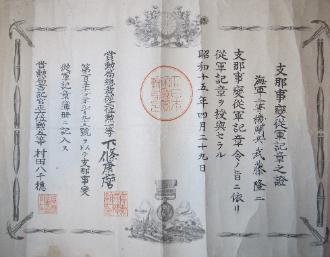 支那事變從軍記章之證
海軍
武藤隆二
支那事變從軍記章令ノ旨ニ依リ
從軍記章ヲ授與セラル
昭和十五年四月二十九日
賞勲局總裁從四位勲二等下條康麿
號ヲ以テ支那事變
從軍記章ノ簿冊ニ記入ス
賞勲局書記官正六位勲五等村田八十穂